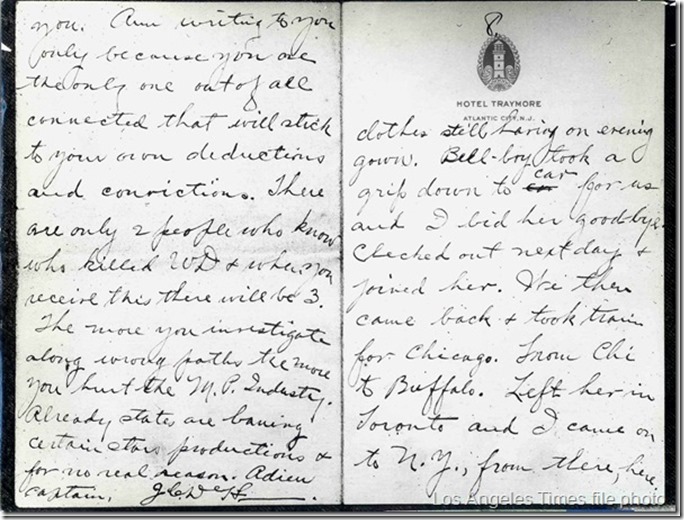 you. Am writing to you
only because you are
the only one out of all
connected that will stick
to your own deductions
and convictions. There
are only 2 people who know
who killed WD & when you
receive this there will be 3.
The more you investigate
along wrong paths the more
you hurt the M.P. Industry.
Already states are baning
certain stars productions &
for no real reason. Adieu
Captain.
8
HOTEL TRAYMORE
ATLANTIC CITY, N.J.
clothes still having on evening
gown. Bell-boy took a
grip down to car for us
and I bid her good-bye.
Checked out next day &
joined her. We then
came back & took train
for Chicago. From Chi
to Buffalo. Left her in
Toronto and I came on
to N.Y., from there, here.
Los Angeles Times file photo